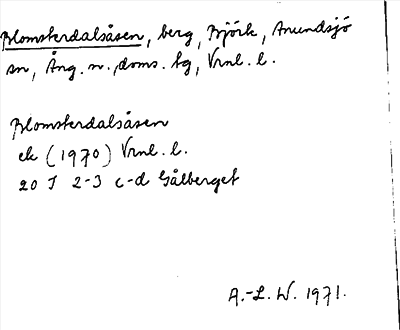 Blomsterdalsåsen, berg, Björk, Anundsjö
sn, Ång. n. doms. hg, Vrnl. l.
Blomsterdalsåsen
ek (1970) Vrnl. l.
20 J 2-3 c-d Gålberget
A.-L. W. 1971.